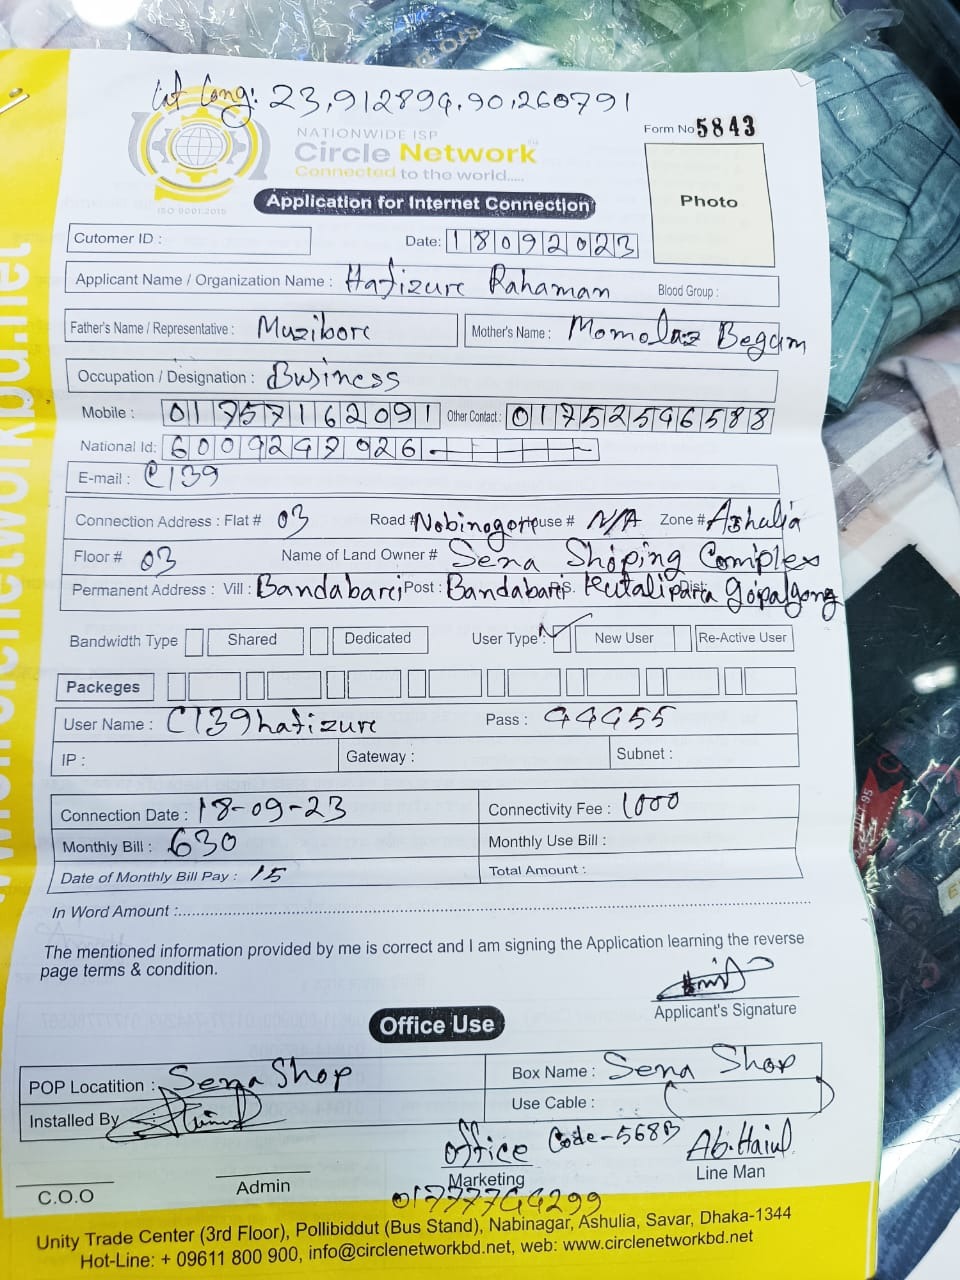 Lat Long: 23.912894, 90.260791
NATIONWIDE ISP
Circle Network
Connected to the world.....
ISO 9001:2015
Form No 5843
Photo
Application for Internet Connection
Cutomer ID :
Date: 18092023
Applicant Name / Organization Name : Hafizure Rahaman Blood Group :
Father's Name / Representative : Muzibore Mother's Name : Momotaz Begum
Occupation / Designation : Business
Mobile : 01757162091 Other Contact : 01752596588
National Id: 6009247026
E-mail : C139
Connection Address : Flat # 03 Road # Nobinogor House # N/A Zone # Ashulia
Floor # 03 Name of Land Owner # Sena Shoping Complex
Permanent Address : Vill : Bandabari Post : Bandabari P.S. Kutalipara Dist: gopalgong
Bandwidth Type Shared Dedicated User Type : New User Re-Active User
Packeges
User Name : C139hafizure Pass : 44455
IP : Gateway : Subnet :
Connection Date : 18-09-23 Connectivity Fee : 1000
Monthly Bill : 630 Monthly Use Bill :
Date of Monthly Bill Pay : 15 Total Amount :
In Word Amount :
The mentioned information provided by me is correct and I am signing the Application learning the reverse
page terms & condition.
Applicant's Signature
Office Use
POP Locatition : Sena Shop Box Name : Sena Shop
Installed By Use Cable :
office Code-568B Ab. Haiul
C.O.O Admin Marketing Line Man
01777744299
Unity Trade Center (3rd Floor), Pollibiddut (Bus Stand), Nabinagar, Ashulia, Savar, Dhaka-1344
Hot-Line: + 09611 800 900, info@circlenetworkbd.net, web: www.circlenetworkbd.net